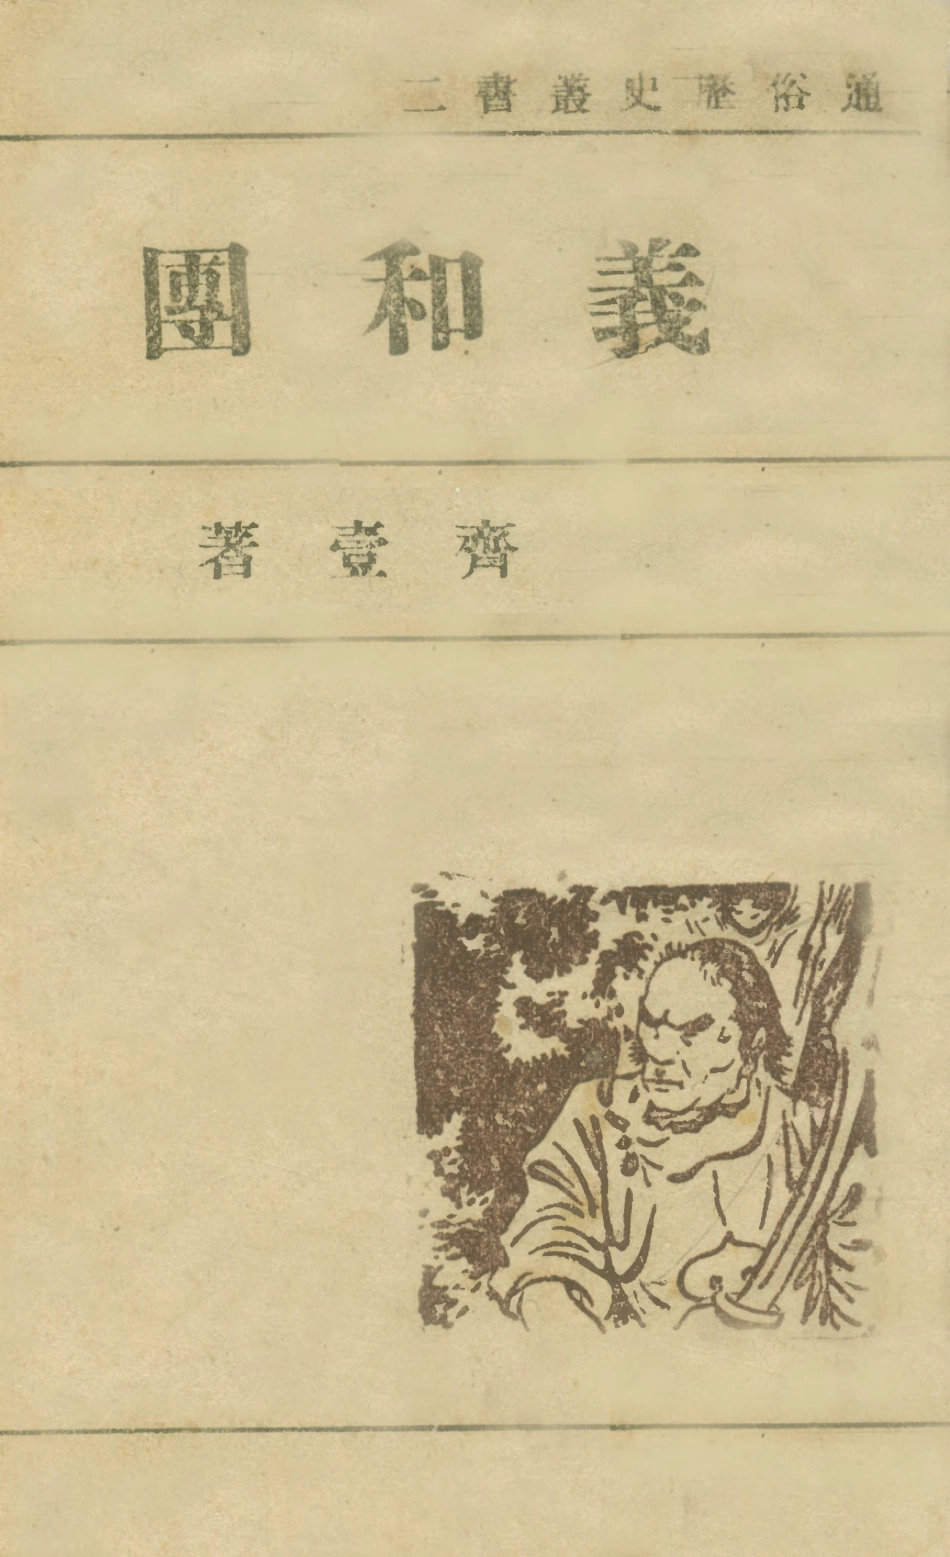 通俗歷史叢書二
義和團
齊壹著